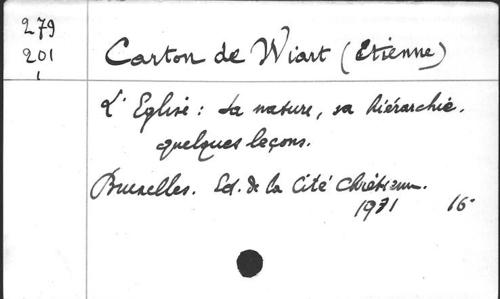 279
201
1
Carton de Wiart (Etienne)
L'Eglise : sa nature, sa hiérarchie.
quelques leçons.
Bruxelles. Ed. de la Cité Chrétienne.
1931 16°